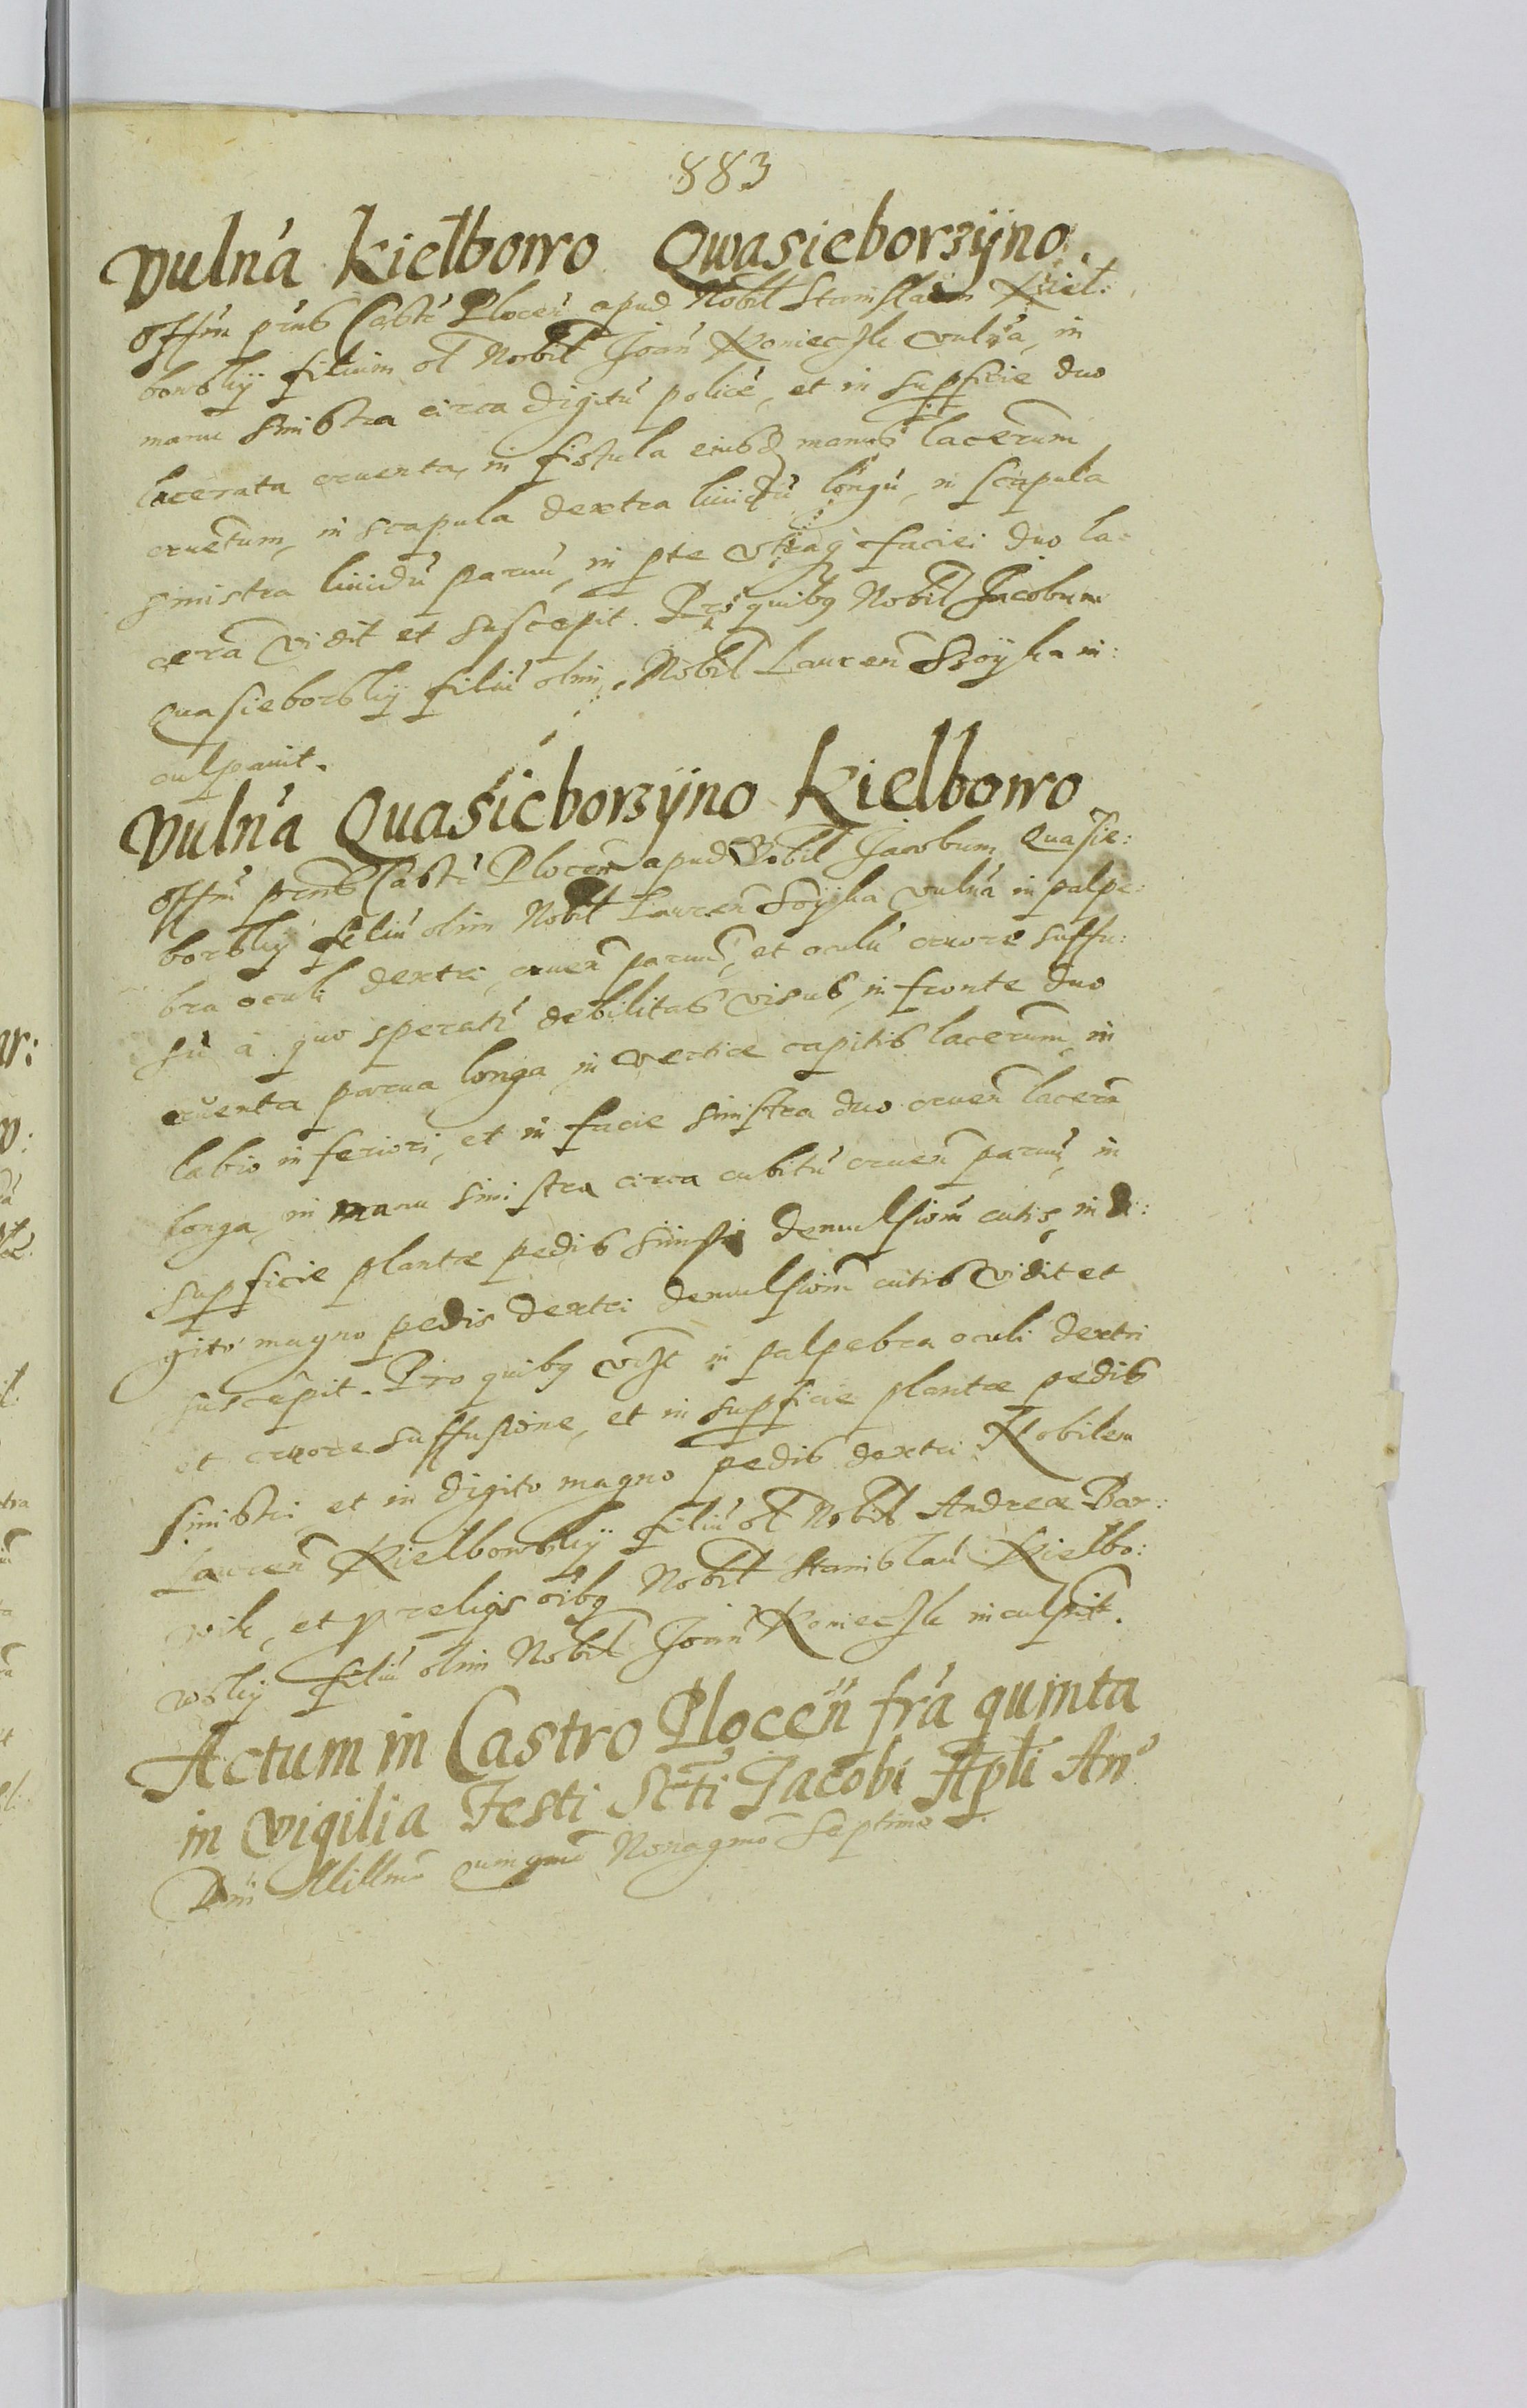 883
Vulna Kiełbowo Qwasieborzÿno.
Offm pns Castr Plocen apud Nobil Stanislaum Kieł:
bowskÿ filium ol Nobil Joan Konieczk vulna, in
manu sinistra circa digitu police, et in supficie duo
lacerata cruenta, in fistula eiusdq manus lacerum
cruetum, in scapula dextra liuidu longu, in scapula
sinistra liuidu paruu, in pte vtraq faciei duo la=
cera vidit et suscepit. Pro quibq Nobil Jacobum
Quasieborskÿ filiu olim Nobil Lauren Szoÿka in:
culpauit.
Vulna Quasieborzÿno Kielbowo
Offm pnns Castr Plocen apud Nobil Jacobum Quasie:
borskÿ filiu olim Nobil Lauren Soÿka vulna in palpe:
bra oculi dextri, cruen paruu, et oculu cruore suffu:
su a quo sperat debilitas visus, in fronte duo
cruenta parua longa in vertice capitis lacerum, in
labio inferiori, et in facie sinistra duo cruen lacera
longa, in manu sinistra circa cubitu cruen paruu, in
supficie plantæ pedis sinistri denulsiom cutis, in di:
gito magno pedis dextri denulsiom cutis vidit et
suscepit. Pro quibq in palpebra oculi dextri
et cruore suffusione, et in supficie plantæ pedis
sinistri et in digito magno pedis dextri Nobilem
Lauren Kielbowskÿ filiu ol Nobil Andreæ Bar:
wik, et p reliqs oibq Nobil Stanislau Kielbo:
wskÿ filiu olim Nobil Joan Konieczk inculpit.
Actum in Castro Plocen fra quinta
in vigilia Festi Scti Jacobi Apli An°
Dni Millmo Quingmo Nonagmo Septimo